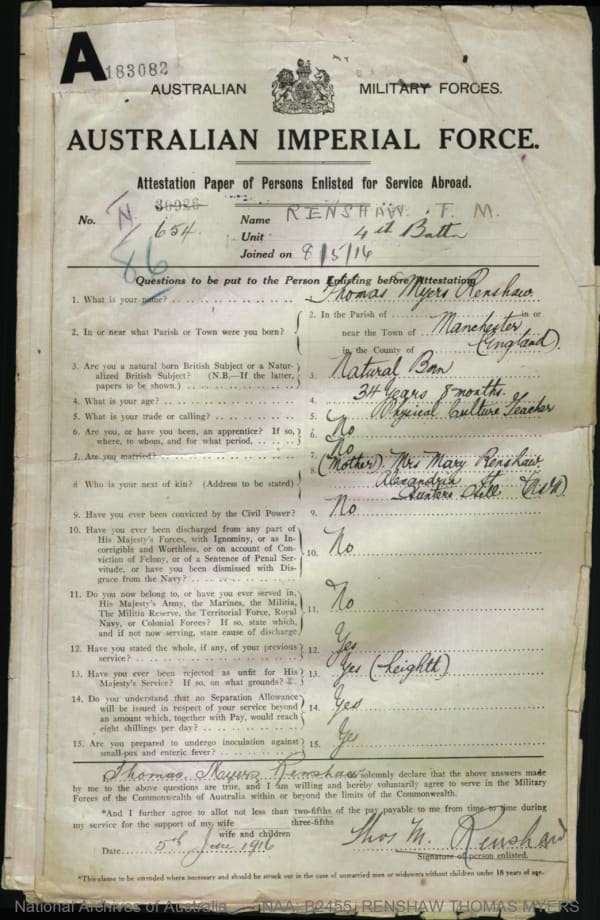 A
183082
AUSTRALIAN MILITARY FORCES.
AUSTRALIAN IMPERIAL FORCE.
Attestation Paper of Persons Enlisted for Service Abroad.
No. 654 Name RENSHAW. T. M.
Unit 4th Battn
Joined on 8/5/16
N
86
Questions to be put to the Person Enlisting before Attestation.
1. What is your name? Thomas Myers Renshaw
2. In or near what Parish or Town were you born? 2. In the Parish of in or
near the Town of Manchester
in the County of (England).
3. Are you a natural born British Subject or a Natur-
alized British Subject? (N.B.—If the latter,
papers to be shown.) 3. Natural Born
4. What is your age? 4. 34 Years 8 months.
5. What is your trade or calling? 5. Physical Culture Teacher
6. Are you, or have you been, an apprentice? If so,
where, to whom, and for what period, 6. No
7. Are you married? 7. No
8 Who is your next of kin? (Address to be stated) 8. (Mother) Mrs Mary Renshaw
Alexandria St
Hunters Hill (NSW).
9. Have you ever been convicted by the Civil Power? 9. No
10. Have you ever been discharged from any part of
His Majesty's Forces, with Ignominy, or as In-
corrigible and Worthless, or on account of Con-
viction of Felony, or of a Sentence of Penal Ser-
vitude, or have you been dismissed with Dis-
grace from the Navy? 10. No
11. Do you now belong to, or have you ever served in,
His Majesty's Army, the Marines, the Militia,
The Militia Reserve, the Territorial Force, Royal
Navy, or Colonial Forces? If so, state which,
and if not now serving, state cause of discharge 11. No
12. Have you stated the whole, if any, of your previous
service? 12. Yes
13. Have you ever been rejected as unfit for His
Majesty's Service? If so, on what grounds? 13. Yes (heightt)
14. Do you understand that no Separation Allowance
will be issued in respect of your service beyond
an amount which, together with Pay, would reach
eight shillings per day? 14. Yes
15. Are you prepared to undergo inoculation against
small-pox and enteric fever? 15. Yes
I Thomas Myers Renshaw solemnly declare that the above answers made
by me to the above questions are true, and I am willing and hereby voluntarily agree to serve in the Military
Forces of the Commonwealth of Australia within or beyond the limits of the Commonwealth.
*And I further agree to allot not less than two-fifths of the pay payable to me from time to time during
three-fifths
my service for the support of my wife
wife and children
Date 5th June 1916 Thos M. Renshaw
Signature of person enlisted.
*This clause to be amended where necessary and should be struck out in the case of unmarried men or widowers without children under 18 years of age.
National Archives of Australia NAA: B2455, RENSHAW THOMAS MYERS